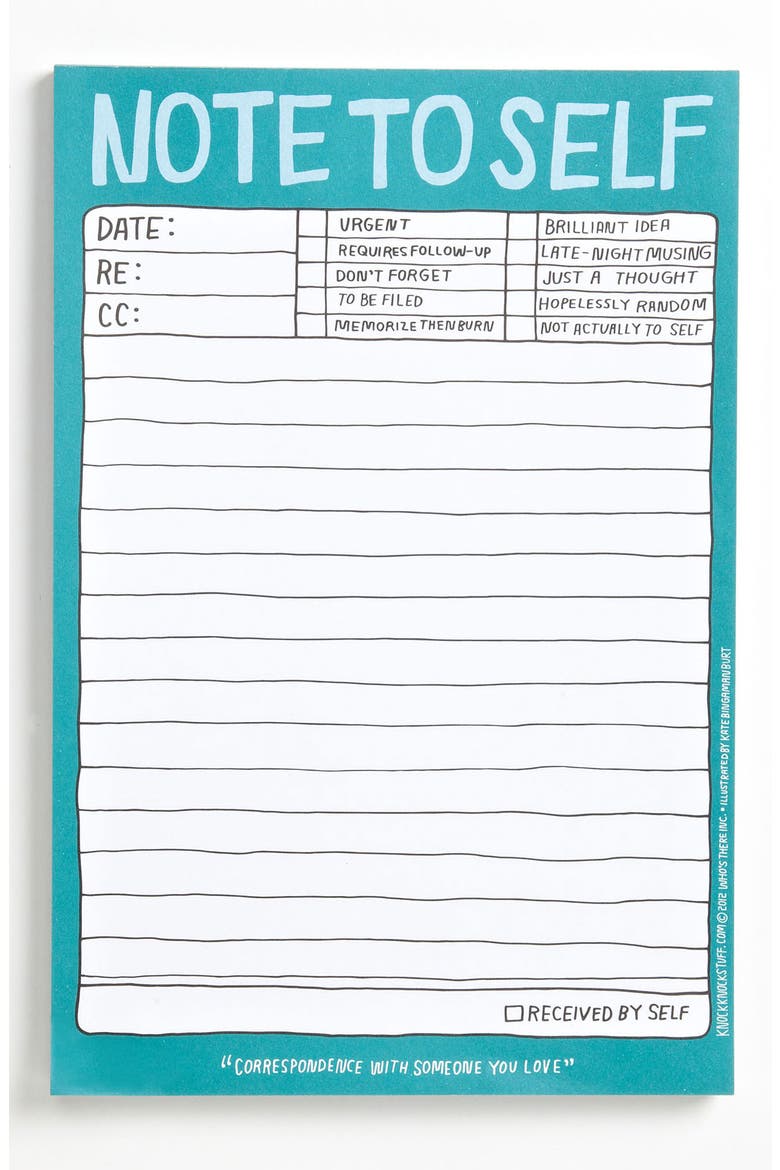 NOTE TO SELF
DATE:
RE:
CC:
URGENT
REQUIRES FOLLOW-UP
DON'T FORGET
TO BE FILED
MEMORIZE THEN BURN
BRILLIANT IDEA
LATE-NIGHT MUSING
JUST A THOUGHT
HOPELESSLY RANDOM
NOT ACTUALLY TO SELF
RECEIVED BY SELF
"CORRESPONDENCE WITH SOMEONE YOU LOVE"
KNOCKKNOCKSTUFF.COM © 2012 WHO'S THERE INC. • ILLUSTRATED BY KATE BINGAMAN BURT